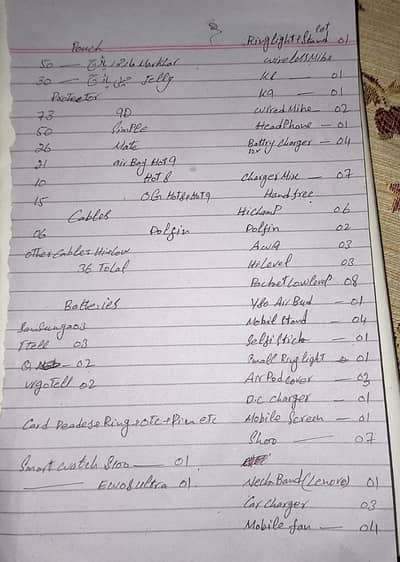 Pouch
50 — Marklar
30 — Jelly
Protector
73 9D
50 Simple
26 Mate
21 air Bag Hot 9
10 Hot 8
15 OG Hot8+Hot9
Cables
06 Dolfin
other Cables
36 Total
Batteries
03
Itell 03
Q — 02
VigoTell 02
Card Reader+Ring+OTC+Pin etc
Smart watch — 01
Ultra 01
Ringlight+Stand 01
Wireless Mike
K8 — 01
K9 — 01
Wired Mike — 02
HeadPhone — 01
Battry Charger — 04
12v
Charger Mix — 07
Handfree
06
Dolfin 02
AWA 03
Hilevel 03
08
Y80 Air Bud — 01
Mobil Stand — 04
Selfi Stick — 01
Small Ring light 01
Air Pod Cover — 03
D.C charger — 01
Mobile Screen — 01
Shoo — 07
Neck Band (Lenovo) 01
Car Charger 03
Mobile fan — 04